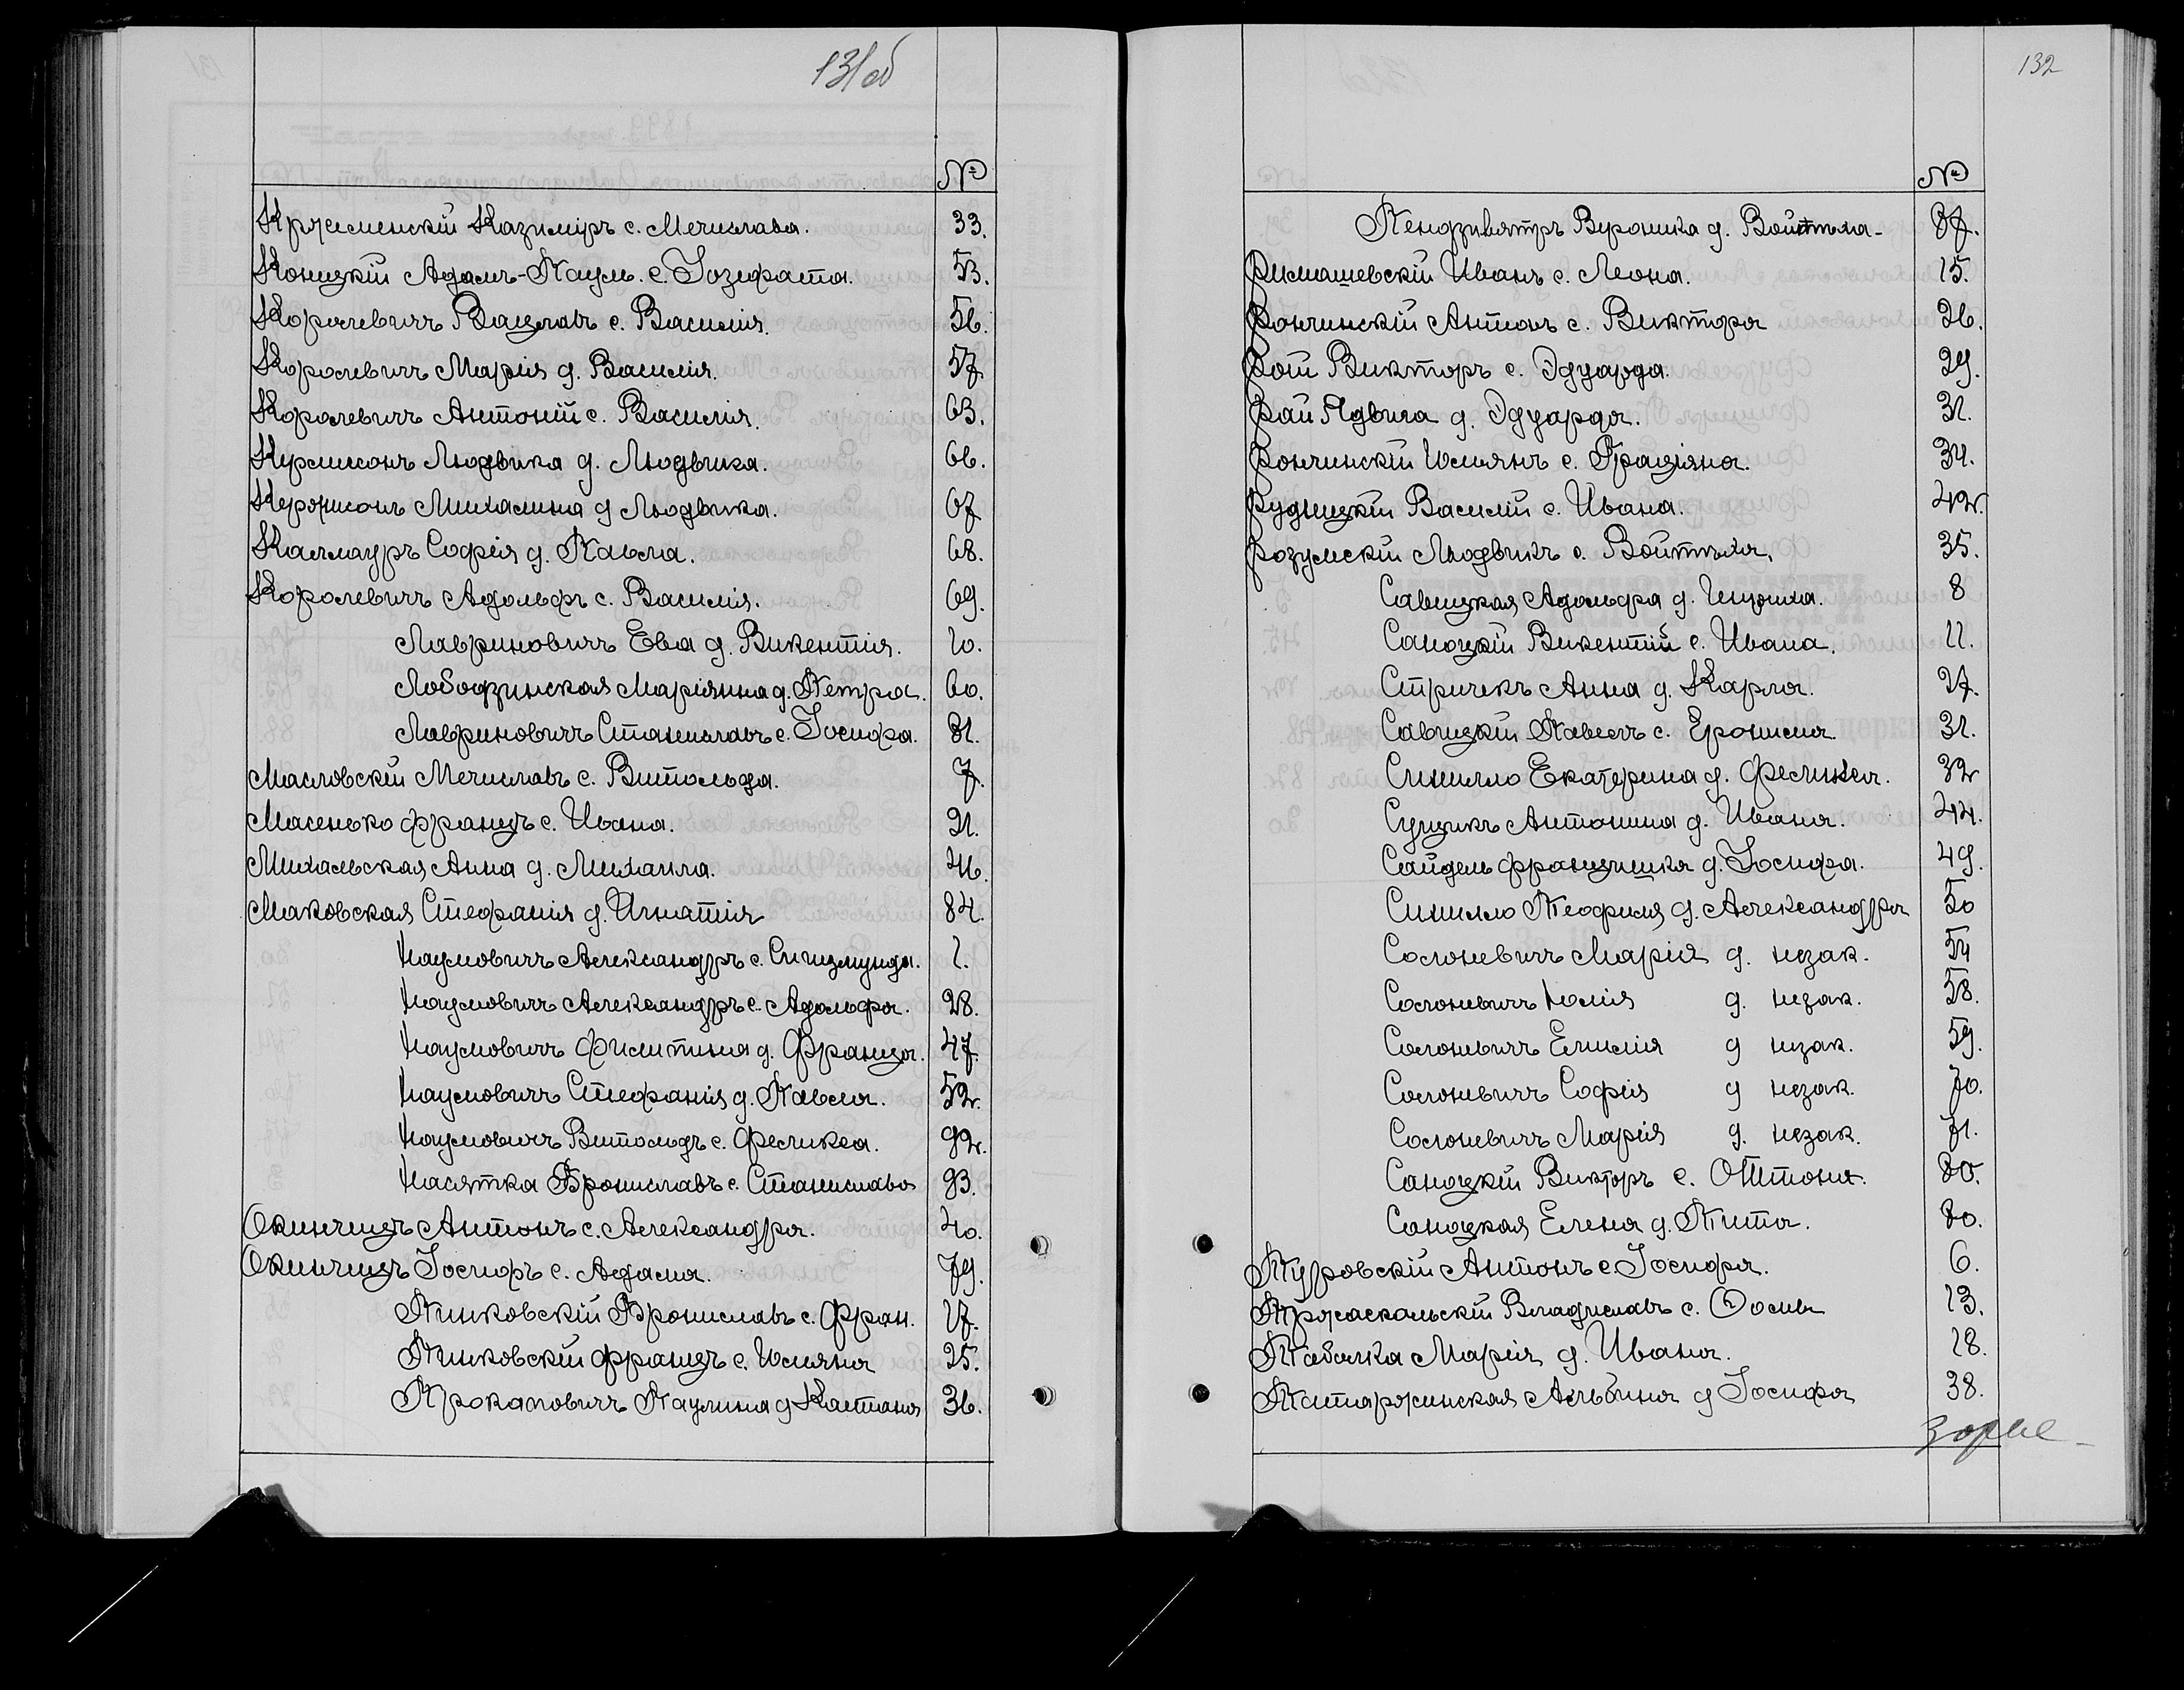 131об
№
Кржеменскій Казиміръ с. Мечислава. 33.
Коницкій Адамъ-Паулъ. с. Іозефата. 53.
Королевичъ Вацлавъ с. Василія. 56.
Королевичъ Марія д. Василія. 57
Королевичъ Антоній с. Василія. 63.
Людвика д. Людвика. 66.
Михалина д Людвика. 67
Каллауръ Софія д. Павла. 68.
Королевичъ Адольфъ с. Василія. 69.
Лавриновичъ Ева д. Викентія. 10.
Лободзинская Маріянна д. Петра. 60.
Лавриновичъ Станиславъ с. Іосифа. 81.
Масловскій Мечиславъ с. Витольда. 7.
Масенько Францъ с. Ивана. 21.
Михальская Анна д. Михаила. 46.
Маковская Стефанія д. Игнатія 84.
Наумовичъ Александръ с. Сигизмунда. 1.
Наумовичъ Александръ с. Адольфа. 28.
Наумовичъ Филитина д. Франца. 47.
Наумовичъ Стефанія д. Павла. 52.
Наумовичъ Витольдъ с. Феликса. 92.
Насятка Брониславъ с. Станислава 93.
Окинчицъ Антонъ с. Александра. 40.
Окинчицъ Іосифъ с. Адама. 79.
Пинковскій Брониславъ с. Фран. 17.
Пинковскій Францъ с. Юліяна 25.
Прокаповичъ Паулина д Каетана 36.
132
№
Пендзивятръ Вероника д. Войтѣха- 87.
Рымашевскій Иванъ с. Леона. 15.
Рончинскій Антонъ с. Виктора 26.
Рай Викторъ с. Эдуарда. 29.
Рай Ядвига д. Эдуарда. 31.
Рончинскій Юліянъ с. Граціяна. 34.
Рудницкій Василій с. Ивана. 42.
Розумскій Людвикъ с. Войтѣха, 35.
Савицкая Адольфа д. 8
Саноцкій Викентій с. Ивана. 11.
Стричекъ Анна д. Карла. 27.
Савицкій Павелъ с. Еронима. 31.
Синилло Екатерина д. Феликса. 32
Сущикъ Антонина д. Ивана. 44.
Сайдель Францишка д. Іосифа. 49.
Синилло Теофиля д. Александра 50
Солоневичъ Марія д. незак. 54
Солоневичъ Юлія д. незак. 58.
Солоневичъ Емилія д незак. 59.
Солоневичъ Софія д незак. 70.
Солоневичъ Марія д. незак. 71.
Саноцкій Викторъ с. Антона. 80.
Саноцкая Елена д. Тита. 80.
Туровскій Антонъ с Іосифа. 6.
Тржаскальскій Владиславъ с. 13.
Табалка Марія д. Ивана. 18.
Татаржинская Альбина д Іосифа 38.